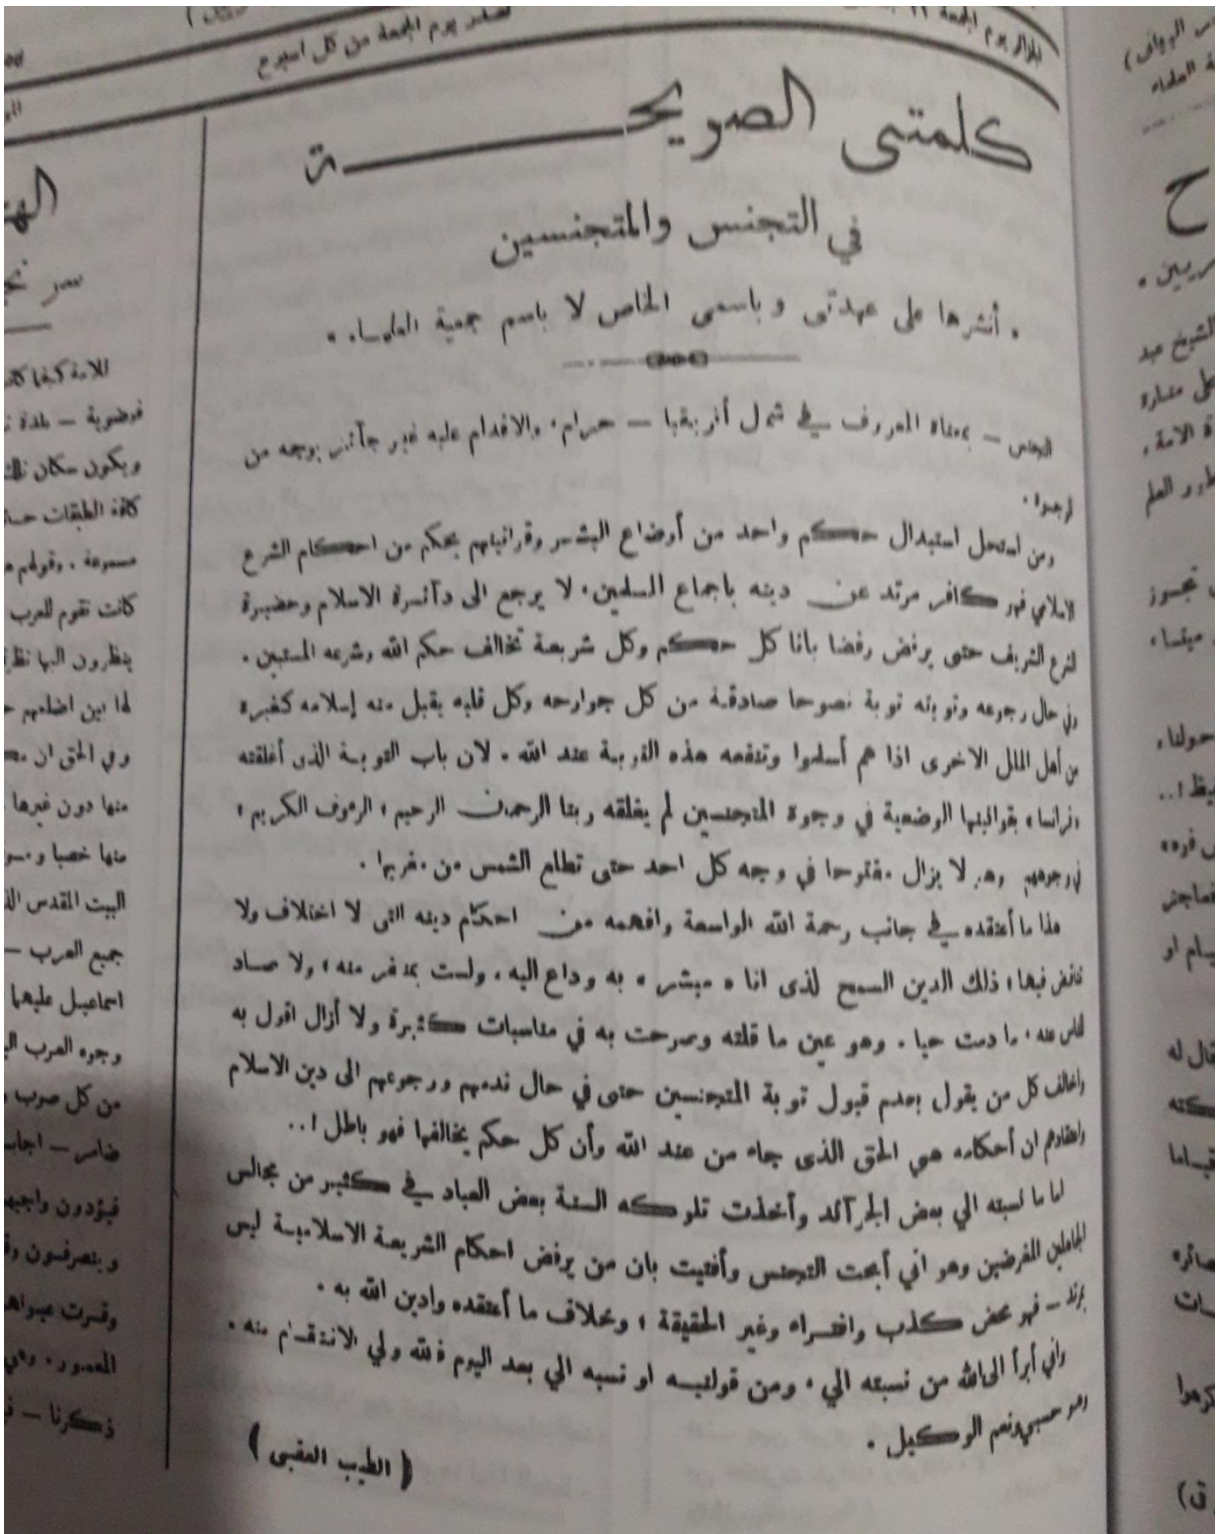 الجزائر يوم الجمعة
تصدر يوم الجمعة من كل اسبوع
كلمتى الصريحـــــة
في التجنس والمتجنسين
. أنشرها على عهدتى وباسمى الخاص لا باسم جمعية العلمـاء .
التجنس — بمعناه المعروف في شمال أفريقيا — حرام، والاقدام عليه غير جآئز بوجه من
الوجوه .
ومن استحل استبدال حكم واحد من أوضاع البشر وقوانينهم بحكم من احكام الشرع
الاسلامي فهو كافر مرتد عن دينه باجماع المسلمين، لا يرجع الى دآئرة الاسلام وحضيرة
الشرع الشريف حتى يرفض رفضا باتا كل حكم وكل شريعة تخالف حكم الله وشرعه المستبين .
وفي حال رجوعه وتوبته توبة نصوحا صادقة من كل جوارحه وكل قلبه يقبل منه إسلامه كغيره
من أهل الملل الاخرى اذا هم أسلموا وتنفعه هذه التوبة عند الله . لان باب التوبة الذى أغلقته
فرانسا، بقوانينها الوضعية في وجوه المتجنسين لم يغلقه ربنا الرحمان الرحيم، الرءوف الكريم،
في وجوههم وهو لا يزال مفتوحا في وجه كل احد حتى تطلع الشمس من مغربها .
هذا ما أعتقده في جانب رحمة الله الواسعة وافهمه من احكام دينه التى لا اختلاف ولا
تناقض فيها، ذلك الدين السمح لذى انا « مبشر » به وداع اليه، ولست بمنفر منه، ولا صاد
للناس عنه، ما دمت حيا . وهو عين ما قلته وصرحت به في مناسبات كثيرة ولا أزال اقول به
واخالف كل من يقول بعدم قبول توبة المتجنسين حتى في حال ندمهم ورجوعهم الى دين الاسلام
واعتقادهم ان أحكامه هي الحق الذى جاء من عند الله وأن كل حكم يخالفها فهو باطل !..
اما ما نسبته الي بعض الجرآئد وأخذت تلوكه السنة بعض العباد في كثير من مجالس
الجاهلين المغرضين وهو اني أبحت التجنس وأفتيت بان من يرفض احكام الشريعة الاسلامية ليس
بمرتد — فهو محض كذب وافتراء وغير الحقيقة، وبخلاف ما أعتقده وادين الله به .
واني أبرأ الى الله من نسبته الي، ومن قولنيه او نسبه الي بعد اليوم فالله ولي الانتقام منه .
وهو حسبي ونعم الوكيل .
( الطيب العقبى )
للامة كيفما
فوضوية — بلدة
ويكون سكان
كافة الطبقات
مسموعة . وقولهم
كانت تقوم للعرب
ينظرون اليها
لها بين اضلعهم
وفي الحق ان
منها دون غيرها
منها خصبا
البيت المقدس
جميع العرب —
اسماعيل عليهما
وجوه العرب
من كل صوب
ضامر —
فيؤدون
وينصرفون
وقرت
المعمور .
ذكرنا —
الشيخ عبد
الامة .
العلم
تجوز
حولنا،
قال له